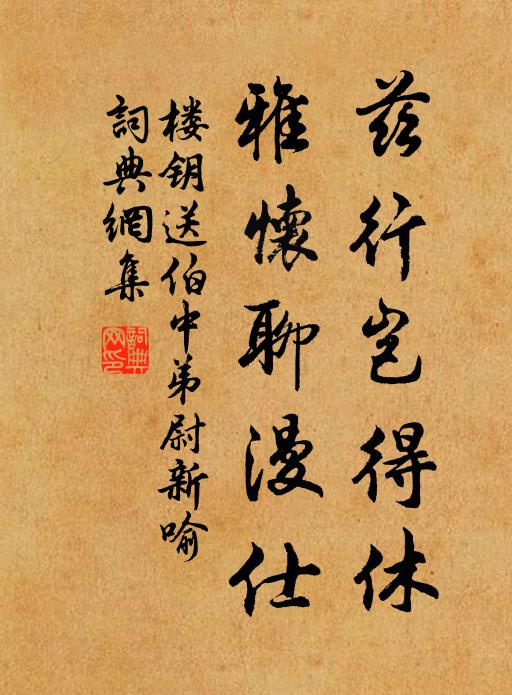 兹行岂得休
雅懷聊漫仕
楼钥送伯中弟尉新喻
詞典網集
詞典网印